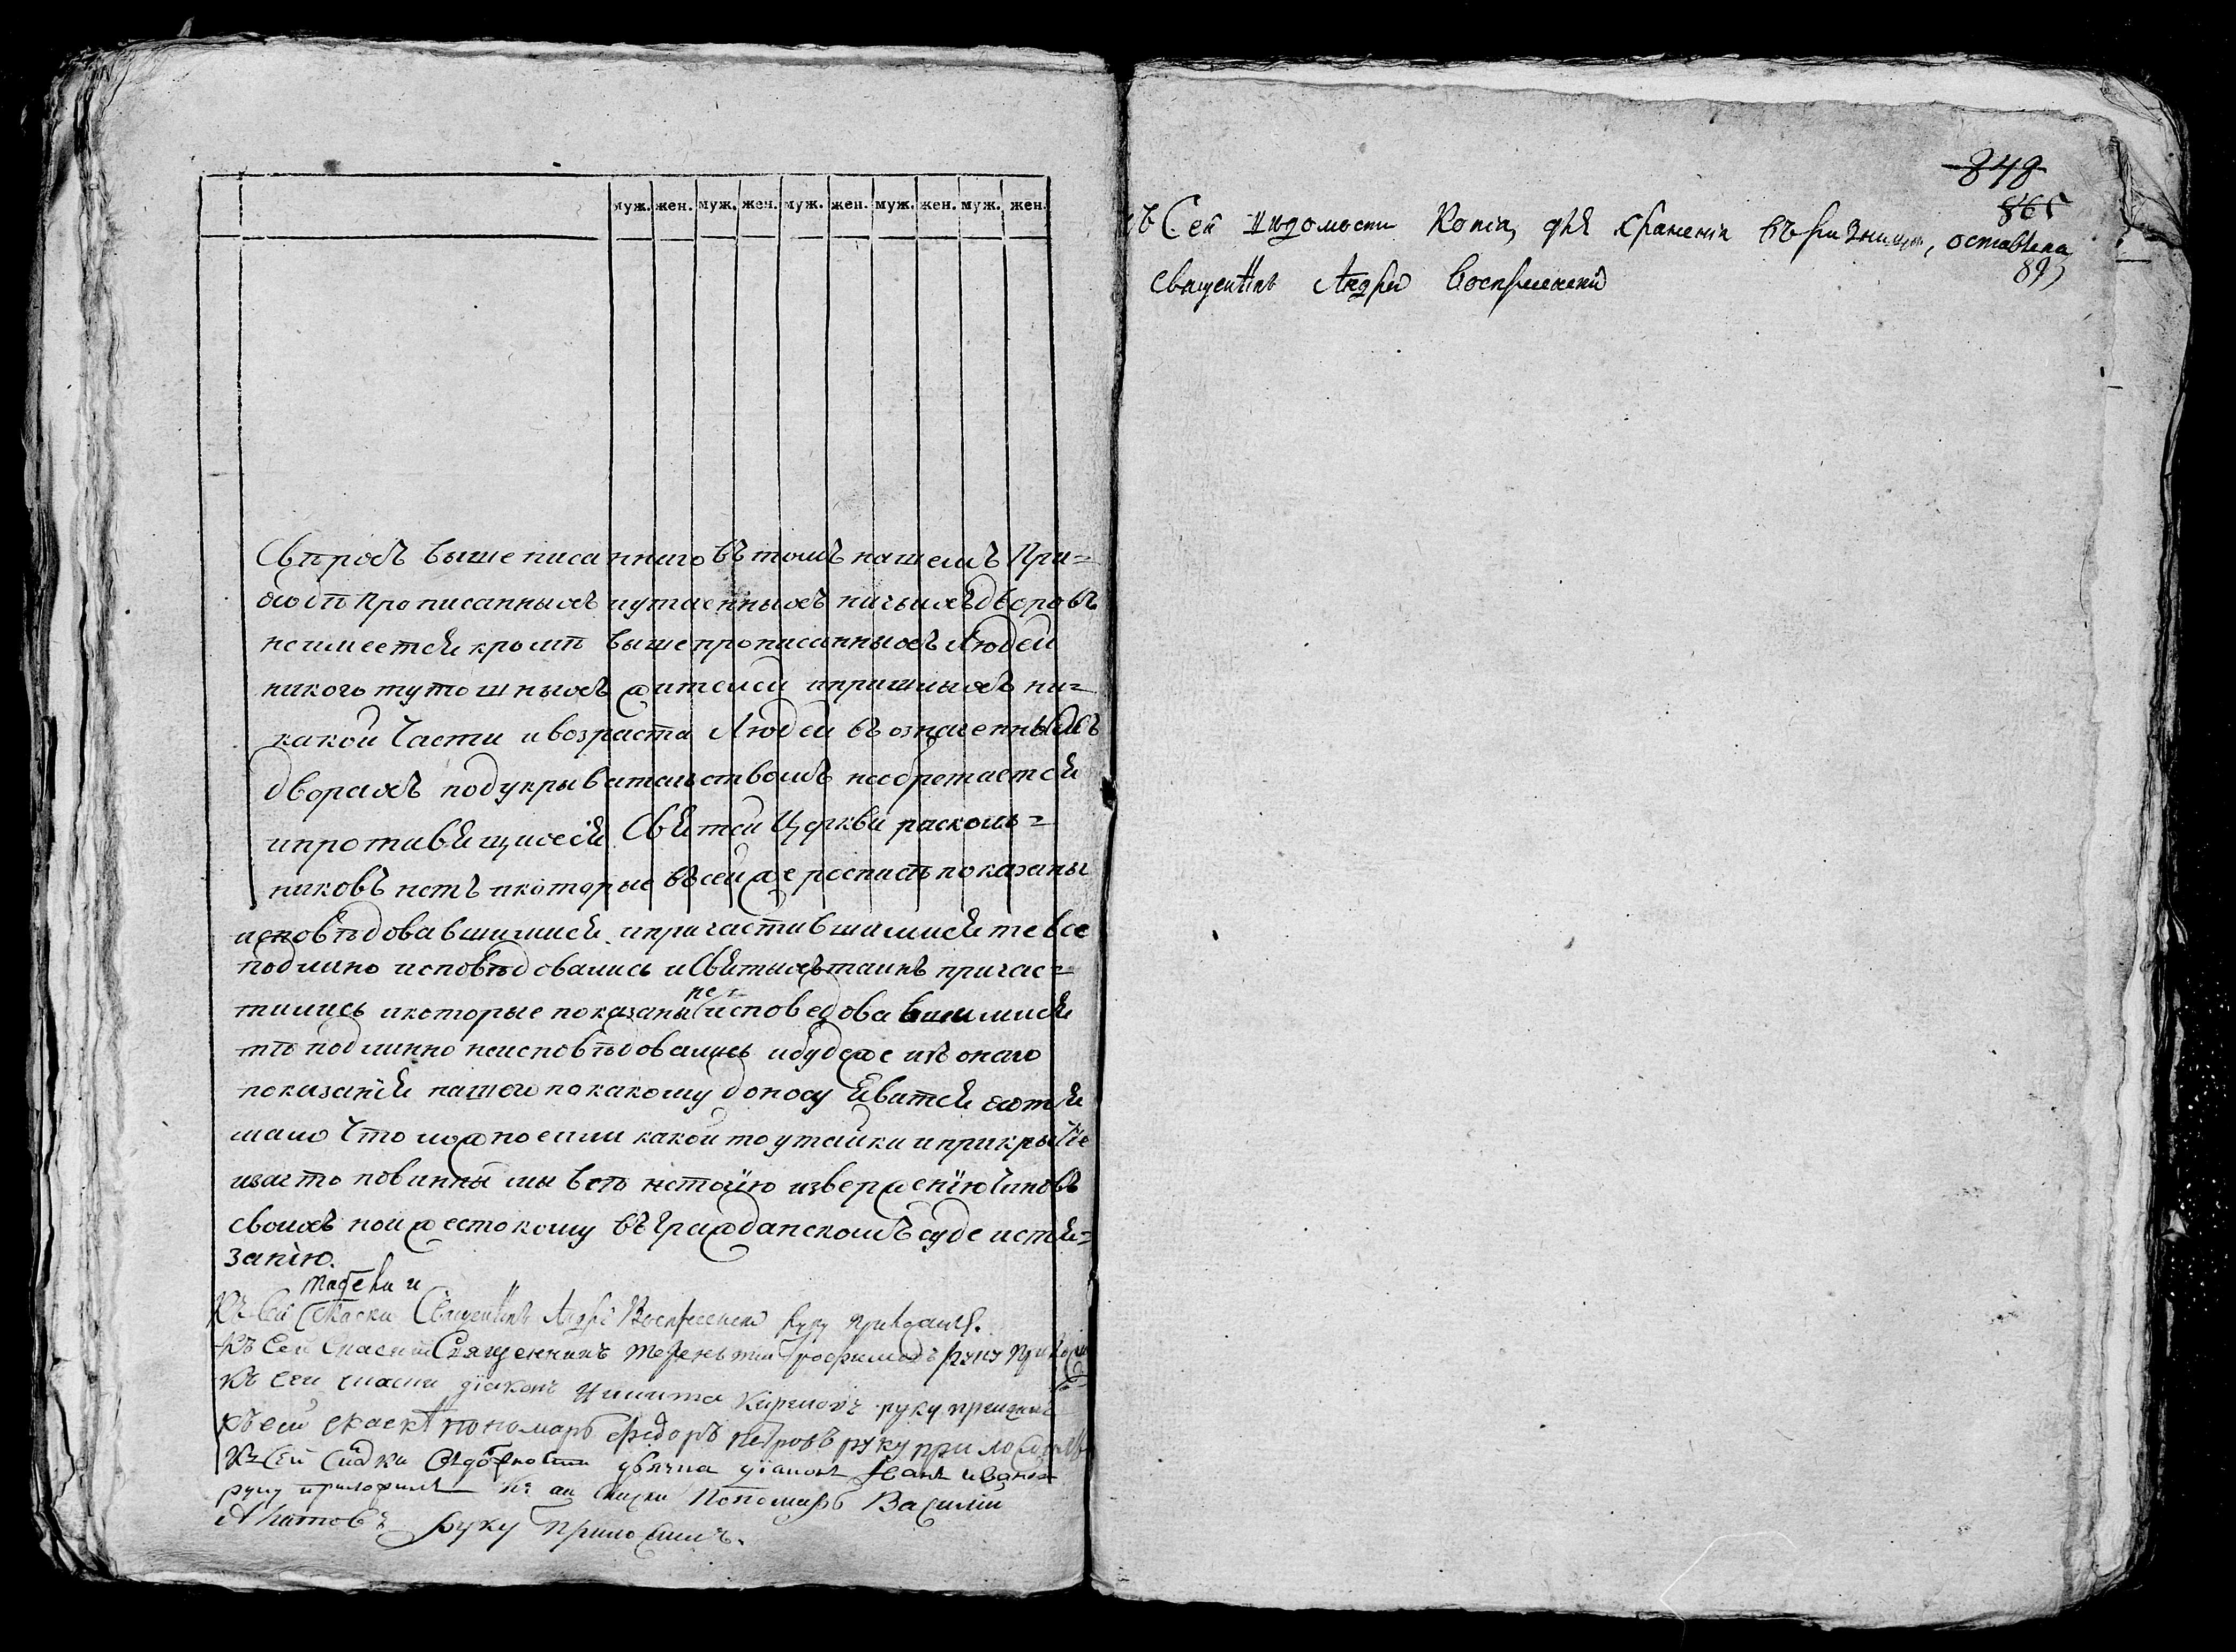 муж. жен. муж. жен. муж. жен. муж. жен. муж. жен.
Свѣрхъ выше писаннаго въ томъ нашемъ При=
ходѣ прописанныхъ иутаенныхъ ничьихъ дворовъ
неимеется кромѣ вышепрописанныхъ Людей
никого тутошныхъ жителей ипришлыхъ ни=
какой Части ивозраста Людей въ означенныхъ
дворахъ подукрывательствомъ необретается
ипротивящихся Святей Церкви расколь=
никовъ нетъ икоторые въсей же росписѣ показаны
исповѣдовавшимися ипричастившимися те все
подлино исповѣдовались иСвятыхъ таинъ причас=
тились икоторые показаны не исповедовавшимися
тѣ подлинно неисповѣдовались ибудеже изъ онаго
показанїя нашего покакому доносу Явится хотя
мало Что ложно или какой то утайки иприкрытїе
изато повинны мы
своихъ ноижестокому въ Гражданскомъ суде истя=
занїю.
табели и
Къ сей скаски Священникъ Андрей Воскресенской руку приложилъ.
Къ сей скаски Священникъ Терентий Трофимовъ руку приложи
лъ
Къ сей скаски дїаконъ Никита Кириловъ руку приложилъ
Къ сей скаскѣ пономарь Федоръ Петровъ руку приложилъ
Къ сей скаски дьячка дїаконъ Иванъ Ивановъ
руку приложилъ Къ сей скаски Пономарь Василий
руку приложилъ.
848
865
съ Сей вѣдомости Копїя, для храненїя въ ризницѣ, оставлена
893
священникъ Андрей Воскресенский